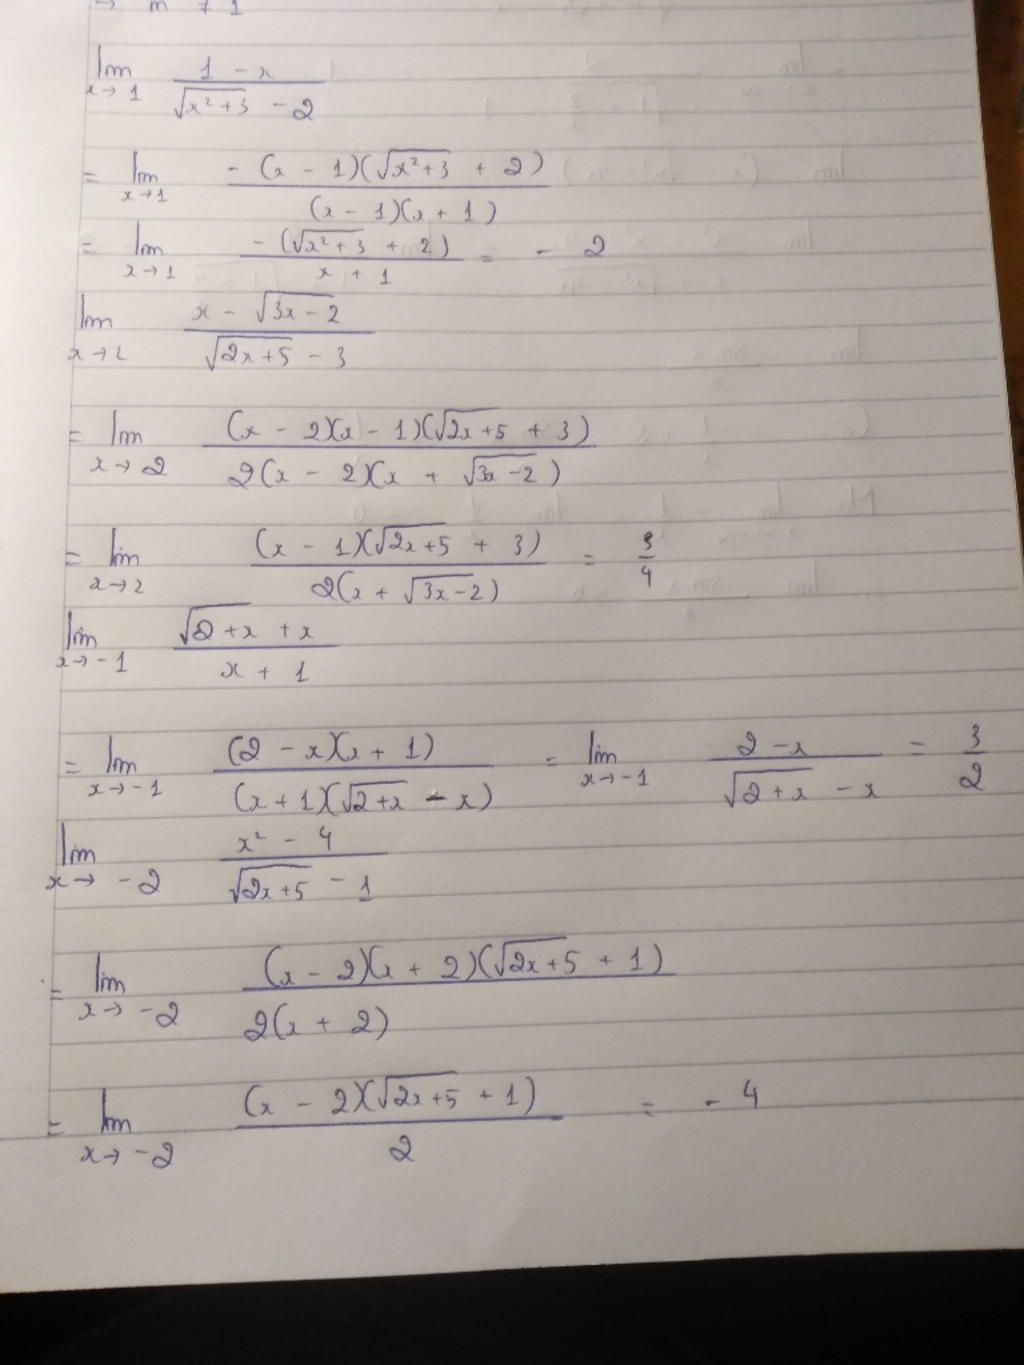 ⇒ m ≠ 1
lim x→1 (1 - x)/(√(x²+3) - 2)
= lim x→1 (-(x - 1)(√(x²+3) + 2))/((x - 1)(x + 1))
= lim x→1 (-(√(x²+3) + 2))/(x + 1) = - 2
lim x→2 (x - √(3x-2))/(√(2x+5) - 3)
= lim x→2 ((x - 2)(x - 1)(√(2x+5) + 3))/(2(x - 2)(x + √(3x-2)))
= lim x→2 ((x - 1)(√(2x+5) + 3))/(2(x + √(3x-2))) = 3/4
lim x→-1 (√(2+x) + x)/(x + 1)
= lim x→-1 ((2 - x)(x + 1))/((x+1)(√(2+x) - x)) = lim x→-1 (2-x)/(√(2+x) - x) = 3/2
lim x→-2 (x² - 4)/(√(2x+5) - 1)
= lim x→-2 ((x - 2)(x + 2)(√(2x+5) + 1))/(2(x + 2))
= lim x→-2 ((x - 2)(√(2x+5) + 1))/2 = - 4